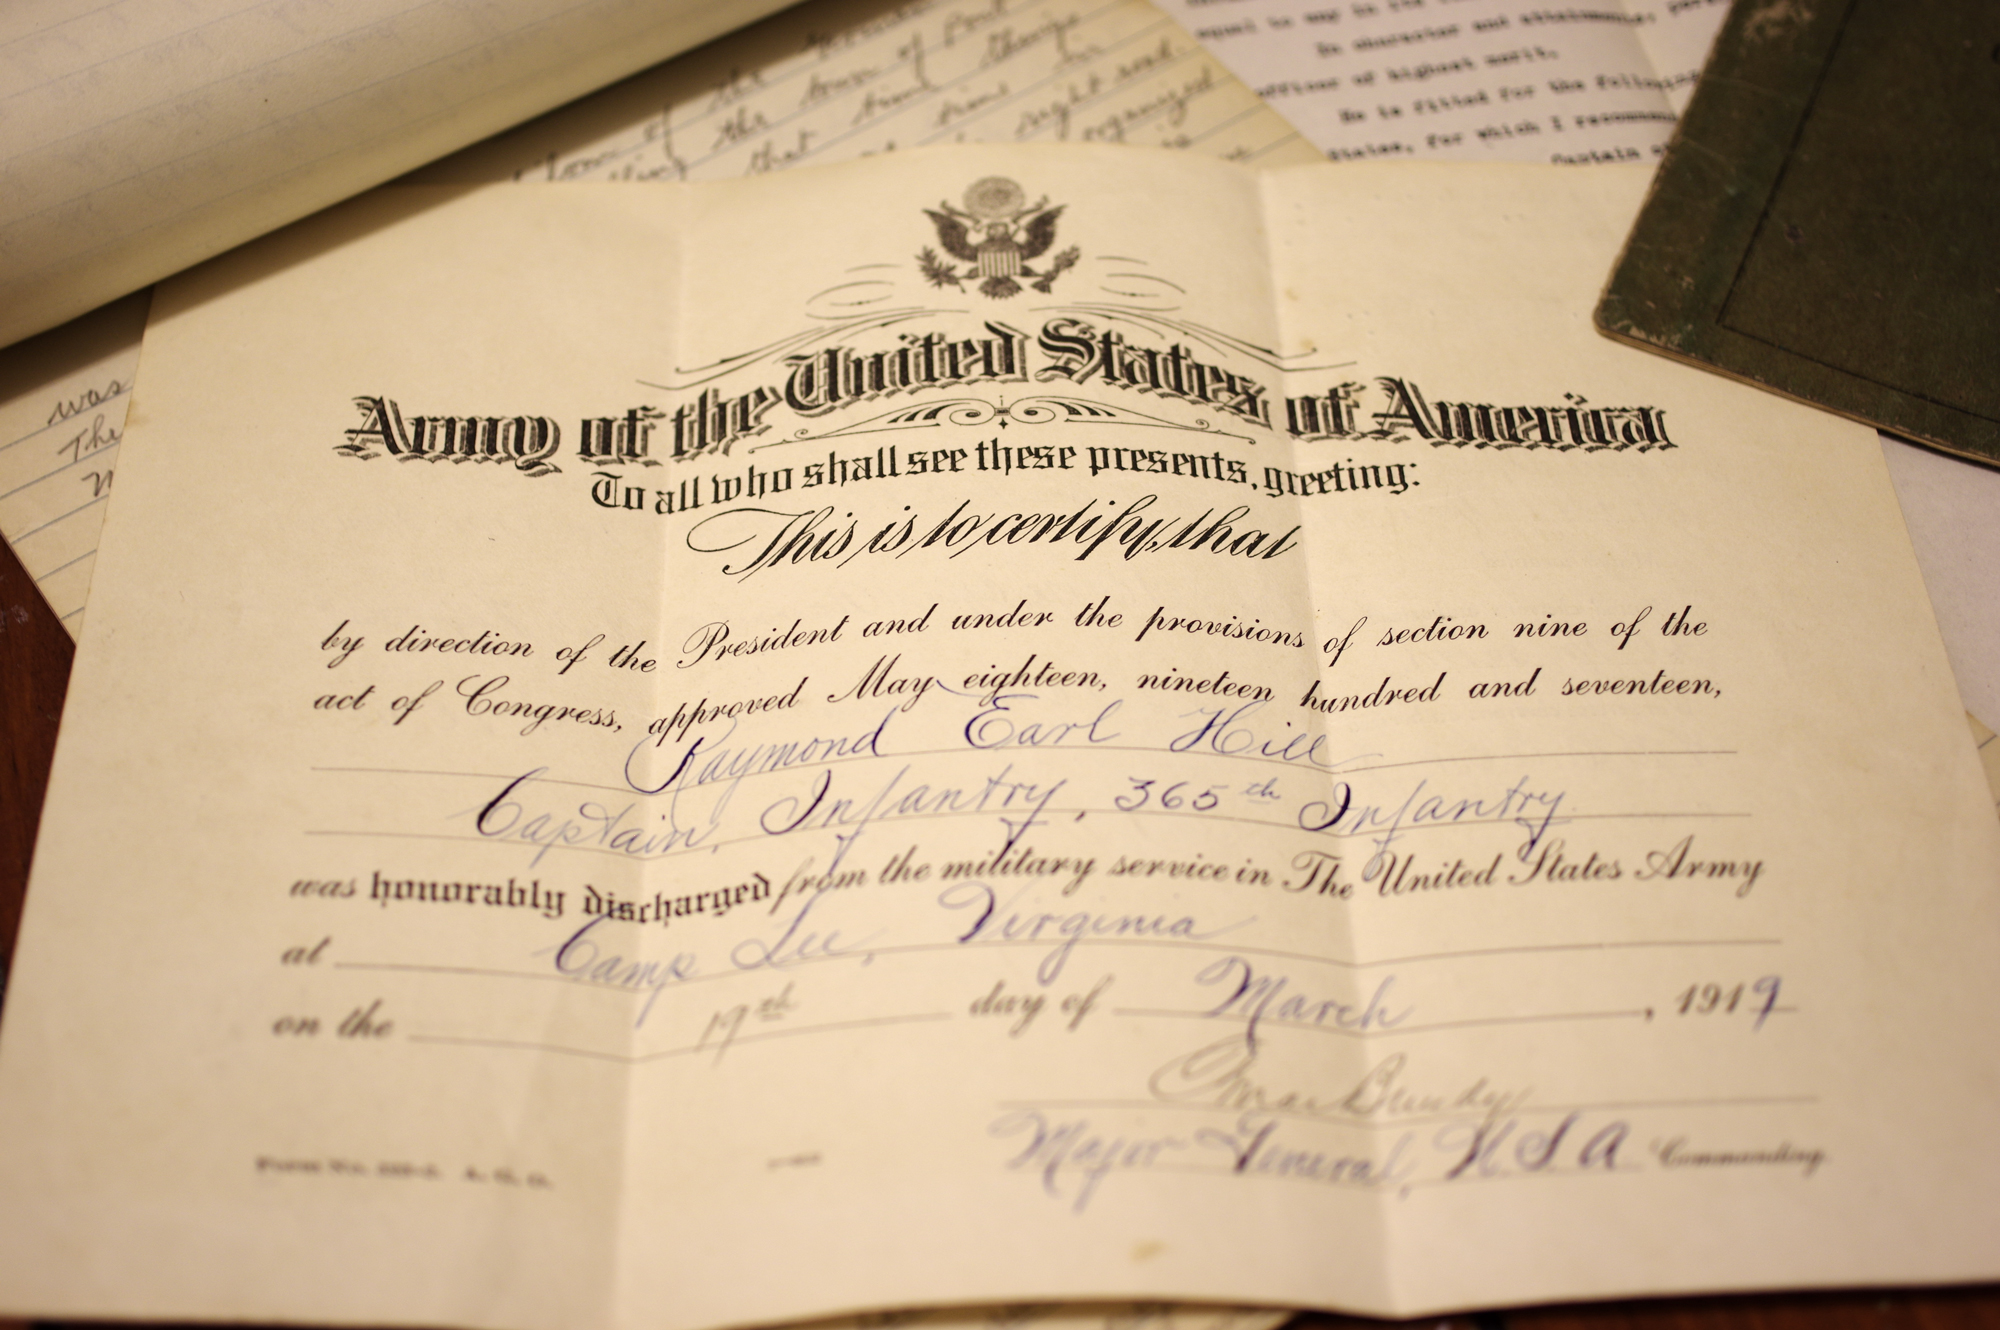 of the
the town of Port
that time things
right and
organized
equal to any in its
In character and attainments,
officer of highest merit.
He is fitted for the following
States, for which I recommend
Captain
was
The
Army of the United States of America
To all who shall see these presents, greeting:
This is to certify, that
by direction of the President and under the provisions of section nine of the
act of Congress, approved May eighteen, nineteen hundred and seventeen,
Raymond Earl Hill
Captain, Infantry, 365th Infantry
was honorably discharged from the military service in The United States Army
at Camp Lee, Virginia
on the 19th day of March, 1919
Omar Bundy
Major General, U S A Commanding.
Form No. A. G. O.